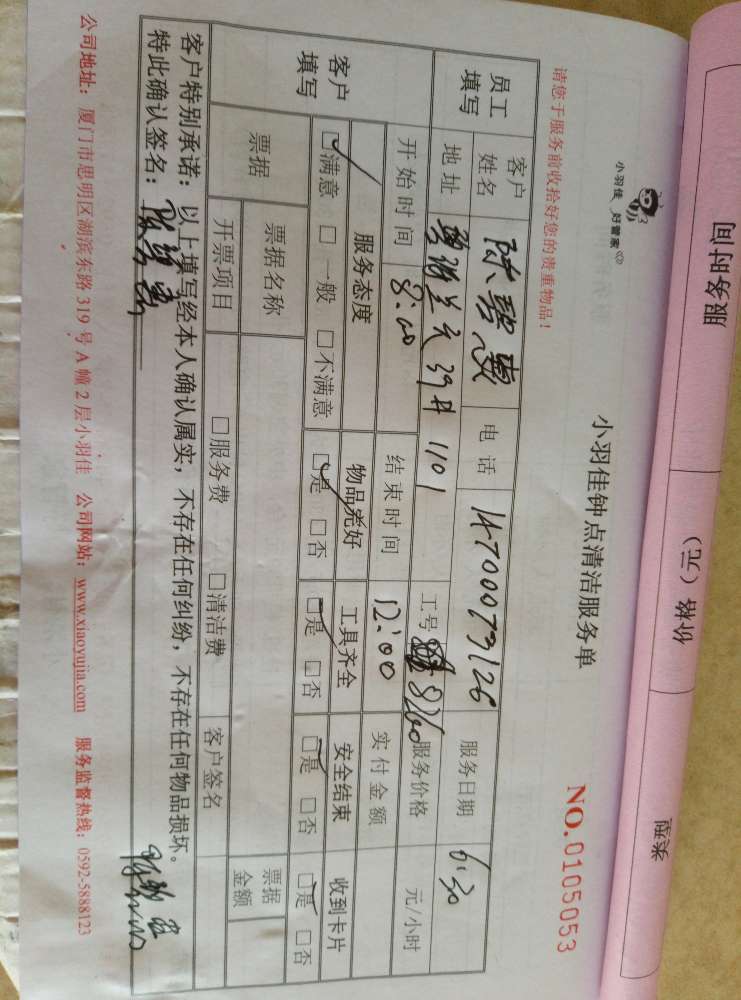 服务时间 价格（元）
小羽佳 好管家
小羽佳钟点清洁服务单
NO.0105053
请您于服务前收拾好您的贵重物品！
员工填写 客户姓名 陈碧惠 电话 服务日期 6.30
地址 39# 1101 工号 8260 服务价格 元/小时
开始时间 8:00 结束时间 12:00 实付金额
客户填写 服务态度 物品完好 工具齐全 安全结束 收到卡片
☑满意 □一般 □不满意 ☑是 □否 ☑是 □否 ☑是 □否 ☑是 □否
票据 票据名称 票据金额
开票项目 □服务费 □清洁费 客户签名
客户特别承诺：以上填写经本人确认属实，不存在任何纠纷，不存在任何物品损坏。
特此确认签名：
公司地址：厦门市思明区湖滨东路319号A幢2层小羽佳 公司网站：www.xiaoyujia.com 服务监督热线：0592-5888123